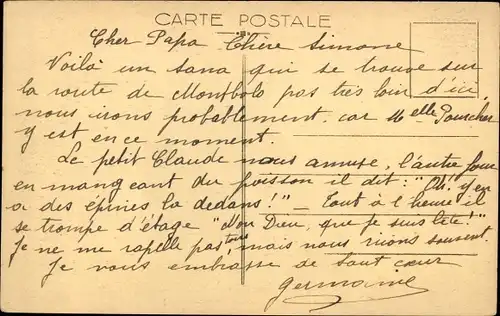 CARTE POSTALE
Cher Papa Chère Simone
Voilà un sana qui se trouve sur
la route de Montbolo pas très loin d'ici,
nous irons probablement. car Melle Pourcher
y est en ce moment.
Le petit Claude nous amuse, l'autre jour
en mangeant du poisson il dit : "Oh! y en
a des épines la dedans!" _ Tout à l'heure il
se trompe d'étage "Mon Dieu, que je suis bête!"
Je ne me rapelle pas tous, mais nous rions souvent.
Je vous embrasse de tout cœur
Germaine